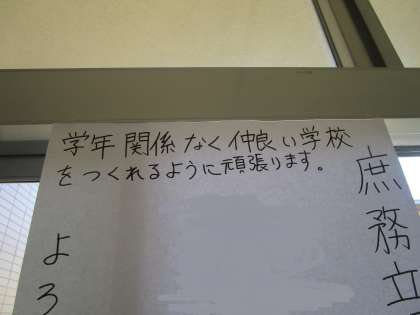 学年関係なく仲良い学校
をつくれるように頑張ります。
庶務立
よろ